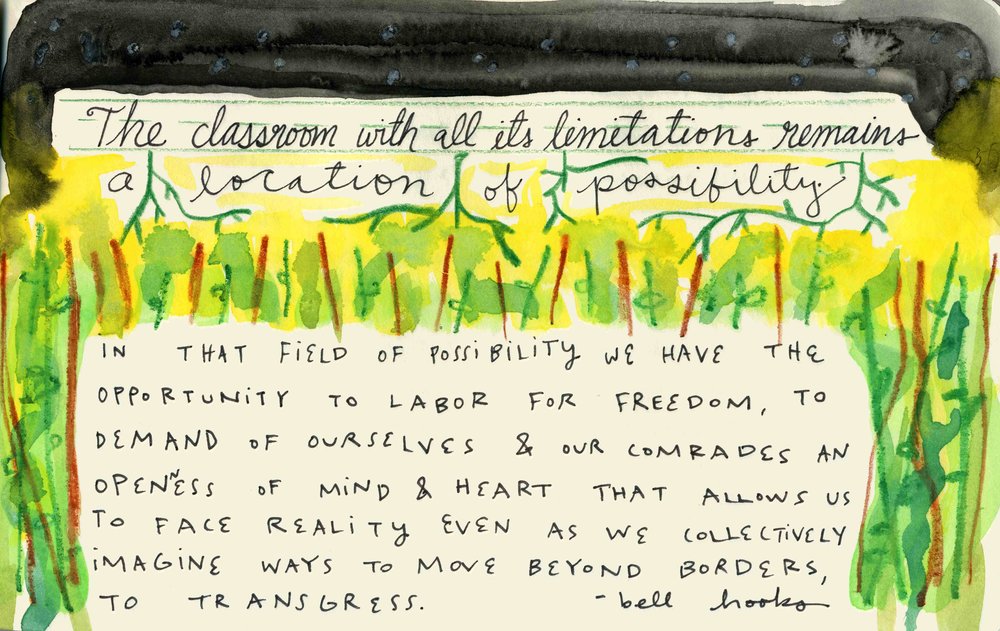 The classroom with all its limitations remains
a location of possibility.
IN THAT FiELD OF POSSiBiLiTY WE HAVE THE
OPPORTUNiTY TO LABOR FOR FREEDOM, TO
DEMAND OF OURSELVES & OUR COMRADES AN
OPENNESS OF MiND & HEART THAT ALLOWS US
TO FACE REALiTY EVEN AS WE COLLECTiVELY
iMAGiNE WAYS TO MOVE BEYOND BORDERS,
TO TRANSGRESS. - bell hooks